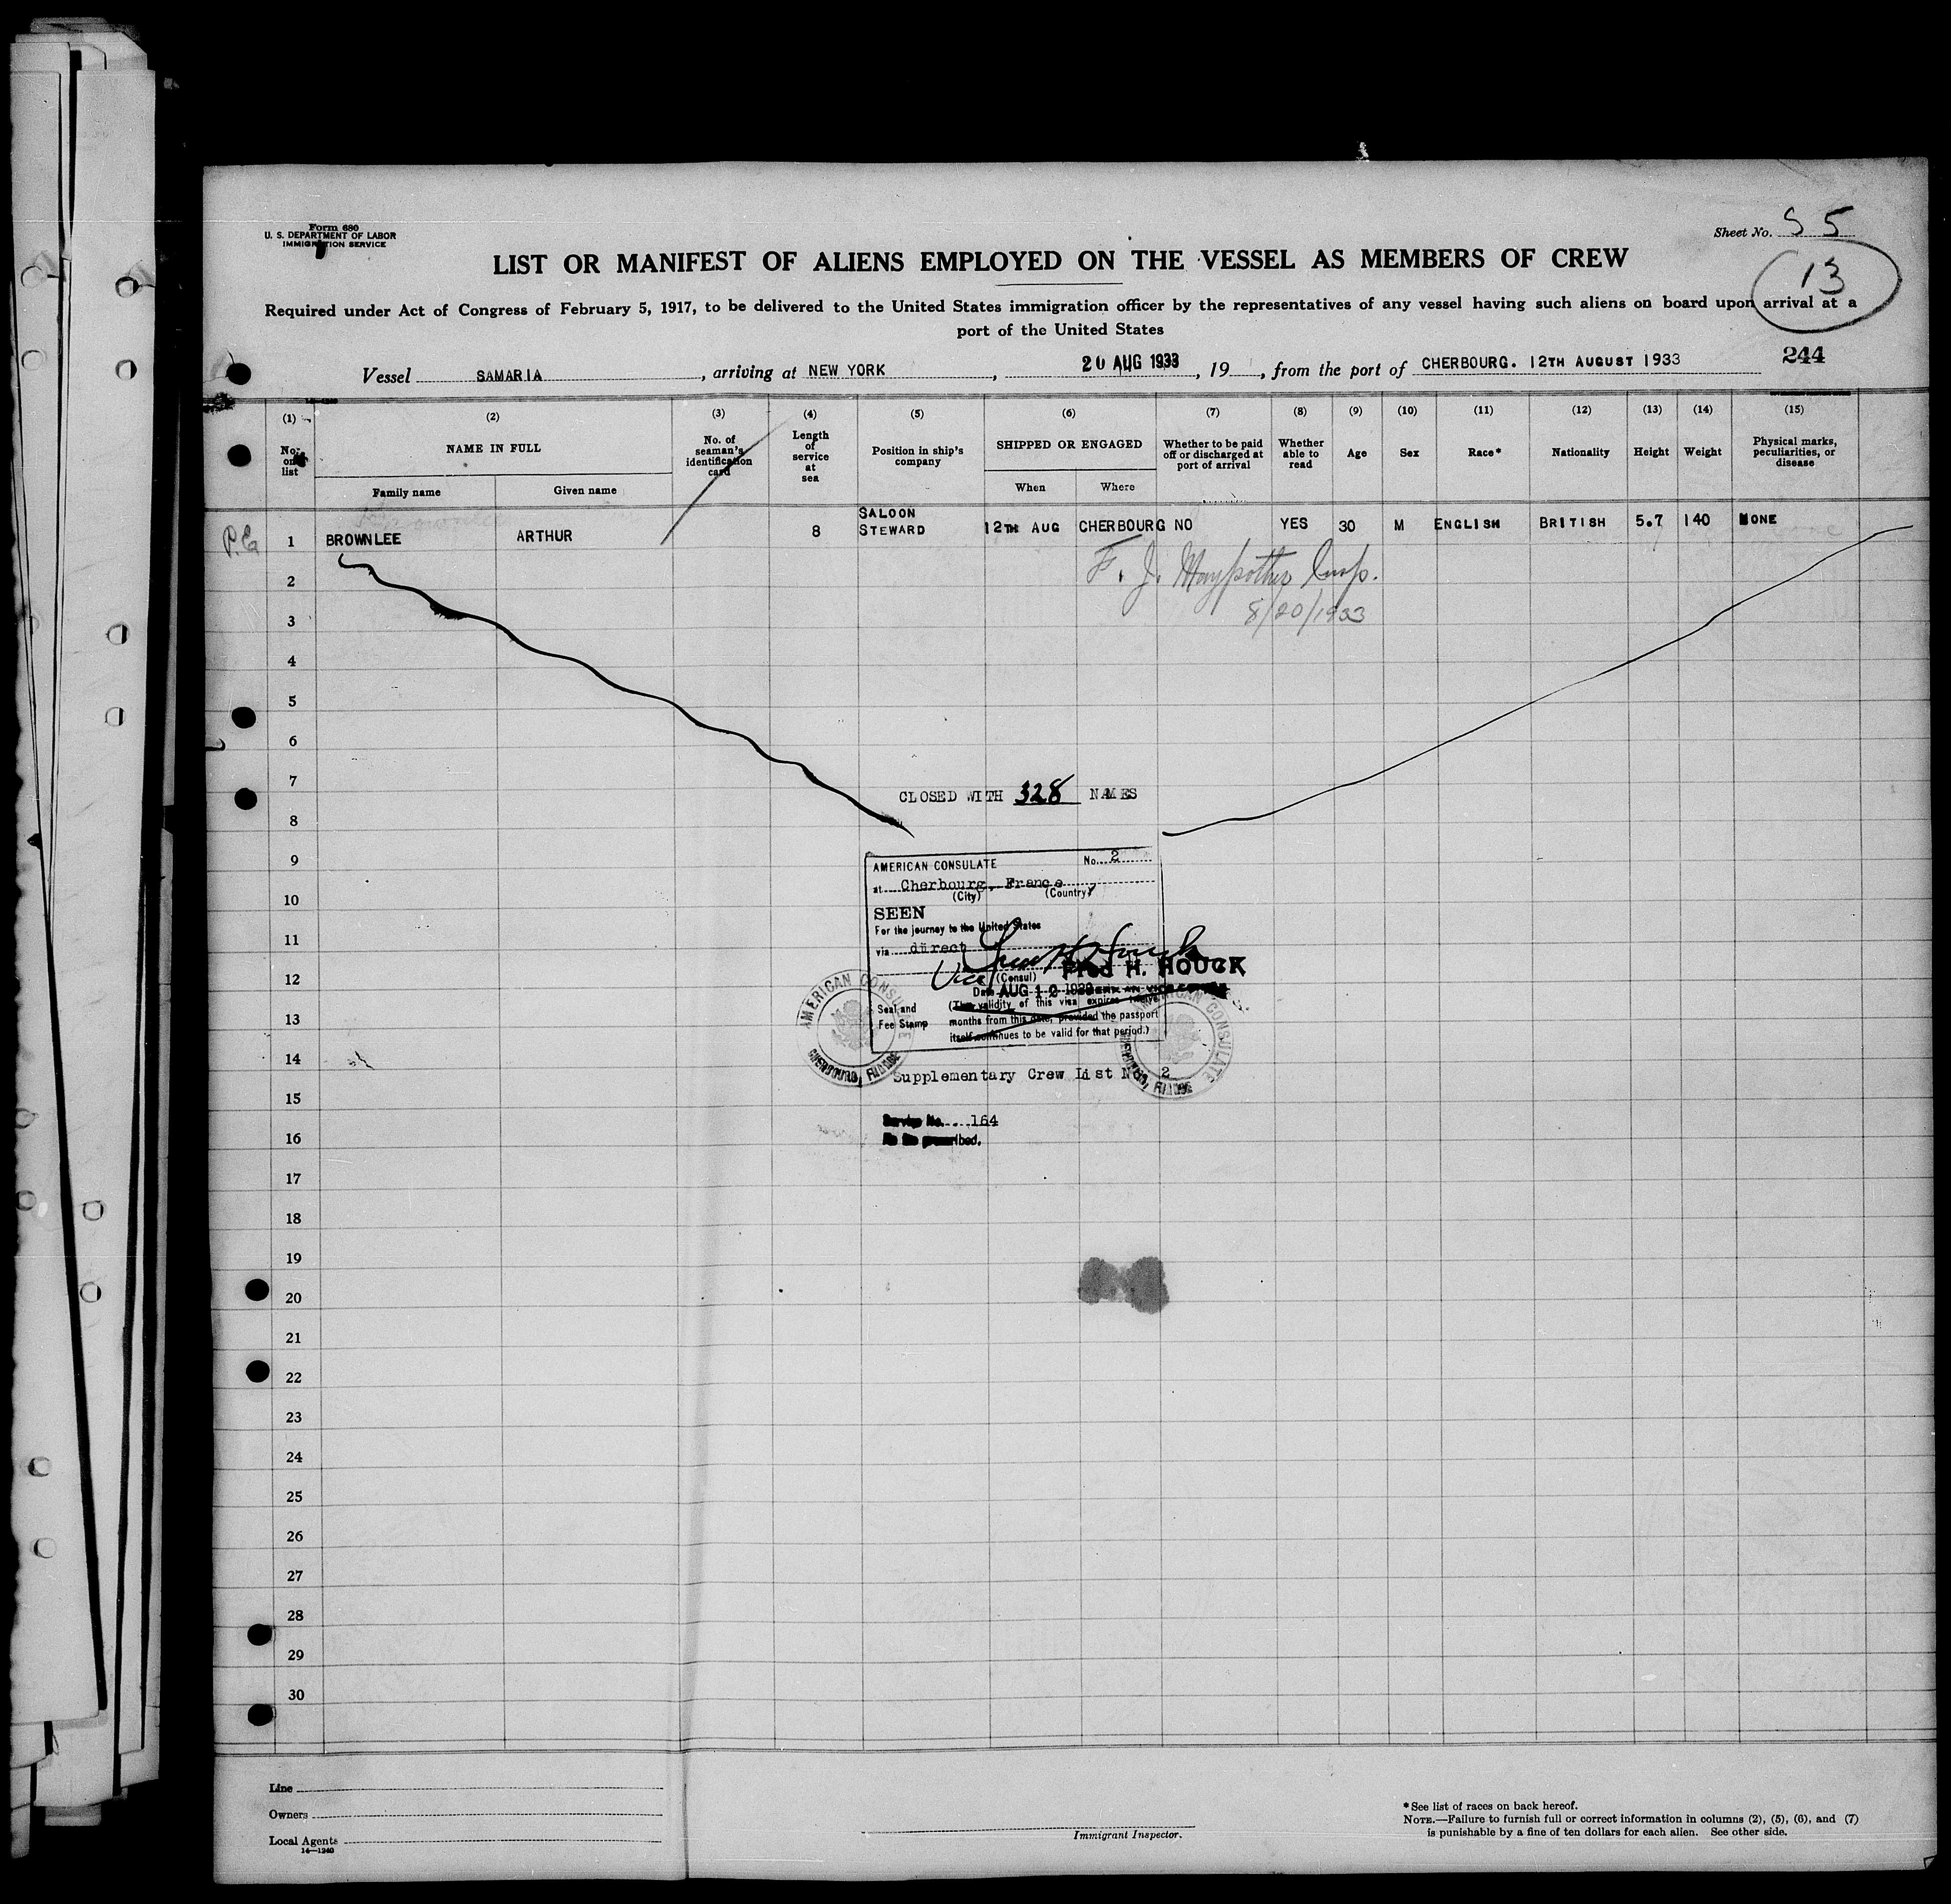 Form 680
U. S. DEPARTMENT OF LABOR
IMMIGRATION SERVICE
Sheet No. S 5
13
LIST OR MANIFEST OF ALIENS EMPLOYED ON THE VESSEL AS MEMBERS OF CREW
Required under Act of Congress of February 5, 1917, to be delivered to the United States immigration officer by the representatives of any vessel having such aliens on board upon arrival at a
port of the United States
244
Vessel SAMARIA, arriving at NEW YORK, 20 AUG 1933, 19 , from the port of CHERBOURG. 12TH AUGUST 1933
(1) (2) (3) (4) (5) (6) (7) (8) (9) (10) (11) (12) (13) (14) (15)
No. on list
NAME IN FULL
Family name Given name
No. of seaman's identification card
Length of service at sea
Position in ship's company
SHIPPED OR ENGAGED
When Where
Whether to be paid off or discharged at port of arrival
Whether able to read
Age
Sex
Race*
Nationality
Height
Weight
Physical marks, peculiarities, or disease
P.E. 1 BROWNLEE ARTHUR 8 SALOON STEWARD 12TH AUG CHERBOURG NO YES 30 M ENGLISH BRITISH 5.7 140 NONE
2
F. J. Maypother Insp.
3
8/20/1933
4
5
6
7
CLOSED WITH 328 NAMES
8
9
AMERICAN CONSULATE No. 2
at Cherbourg, France
(City) (Country)
10
SEEN
For the journey to the United States
11
via direct
12
Vice (Consul) Fred H. HOUCK
Date AUG 12 1933
AMERICAN CONSULATE
CHERBOURG, FRANCE
Seal and
Fee Stamp
(The validity of this visa expires twelve
months from this date, provided the passport
itself continues to be valid for that period.)
AMERICAN CONSULATE
CHERBOURG, FRANCE
13
14
Supplementary Crew List No. 2
15
Service No. 164
16
No fee prescribed.
17
18
19
20
21
22
23
24
25
26
27
28
29
30
Line
Owners
Local Agents
14—1240
Immigrant Inspector.
*See list of races on back hereof.
NOTE.—Failure to furnish full or correct information in columns (2), (5), (6), and (7)
is punishable by a fine of ten dollars for each alien. See other side.